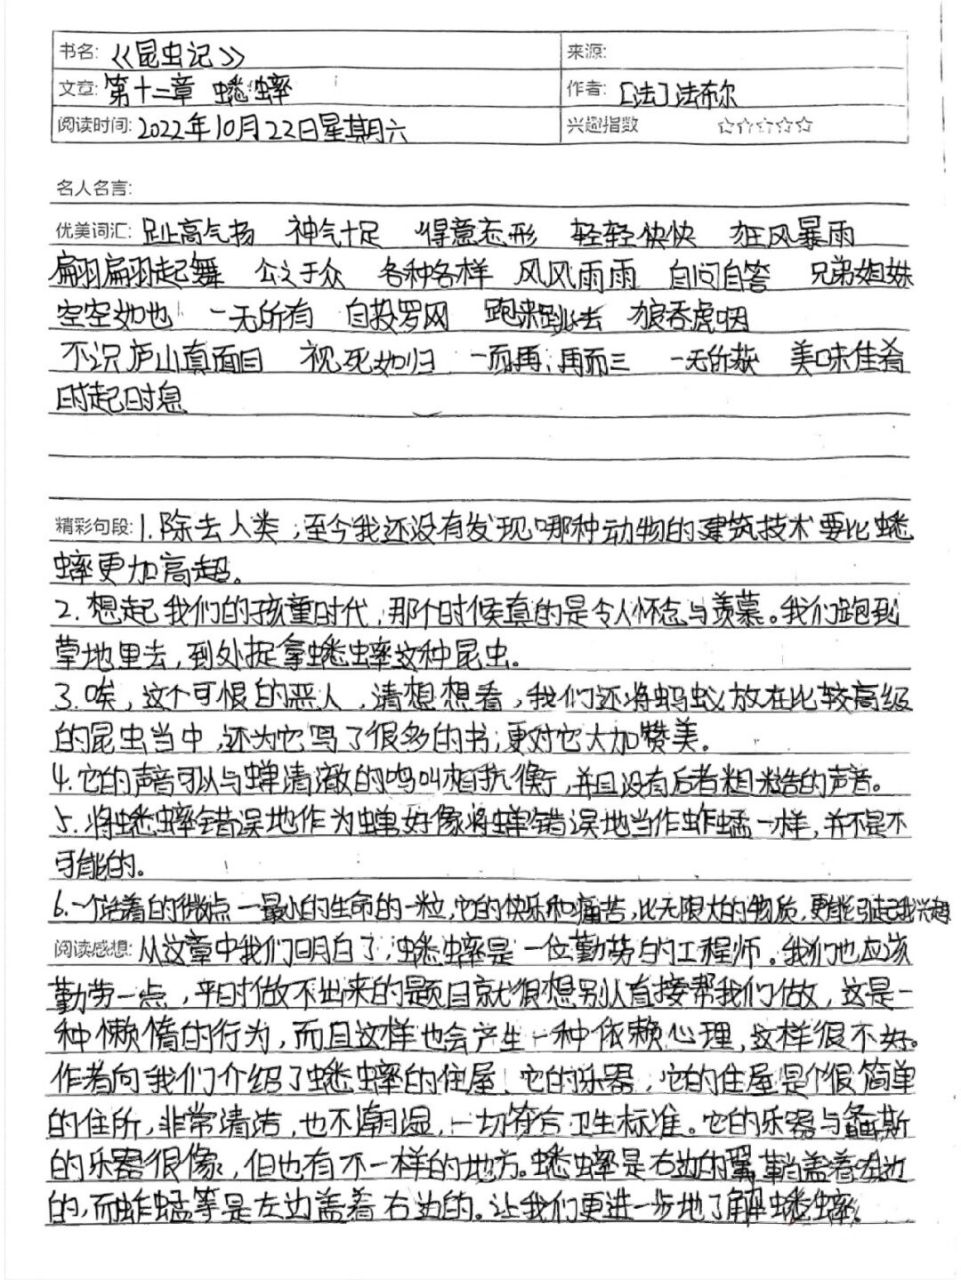 书名: 《昆虫记》 来源:
文章: 第十二章 蟋蟀 作者: [法]法布尔
阅读时间: 2022年10月22日星期六 兴趣指数 ☆☆☆☆☆
名人名言:
优美词汇: 趾高气扬 神气十足 得意忘形 轻轻快快 狂风暴雨
翩翩起舞 公之于众 各种各样 风风雨雨 自问自答 兄弟姐妹
空空如也 一无所有 自投罗网 跑来跑去 狼吞虎咽
不识庐山真面目 视死如归 一而再,再而三 一无所获 美味佳肴
时起时息
精彩句段: 1.除去人类,至今我还没有发现哪种动物的建筑技术要比蟋
蟀更加高超。
2.想起我们的孩童时代,那个时候真的是令人怀念与羡慕。我们跑到
草地里去,到处捉拿蟋蟀这种昆虫。
3.唉,这个可恨的恶人,请想想看,我们还将蚂蚁放在比较高级
的昆虫当中,还为它写了很多的书,更对它大加赞美。
4.它的声音可以与蝉清澈的鸣叫相抗衡,并且没有后者粗糙的声音。
5.将蟋蟀错误地作为蝉,好像将蝉错误地当作蚱蜢一样,并不是不
可能的。
6.一个活着的微点—最小的生命的一粒,它的快乐和痛苦,比无限大的物质,更能引起我兴趣
阅读感想: 从这章中我们明白了,蟋蟀是一位勤劳的工程师。我们也应该
勤劳一点,平时做不出来的题目就很想别人直接帮我们做,这是一
种懒惰的行为,而且这样也会产生一种依赖心理,这样很不好。
作者向我们介绍了蟋蟀的住屋、它的乐器,它的住屋是个很简单
的住所,非常清洁,也不潮湿,一切符合卫生标准。它的乐器与螽斯
的乐器很像,但也有不一样的地方。蟋蟀是右边的翼鞘盖着左边
的,而蚱蜢等是左边盖着右边的。让我们更进一步地了解蟋蟀。